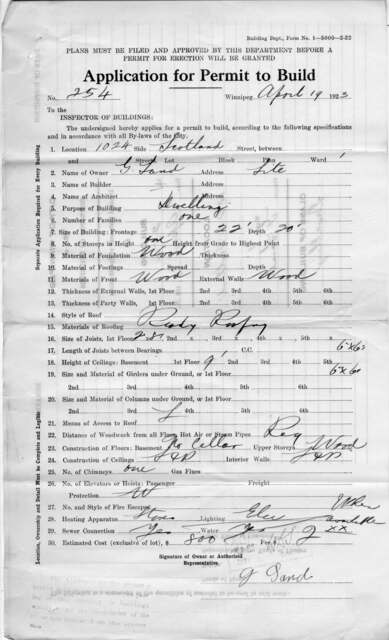 Building Dept., Form No. 1—5000—2-22
PLANS MUST BE FILED AND APPROVED BY THIS DEPARTMENT BEFORE A
PERMIT FOR ERECTION WILL BE GRANTED
Application for Permit to Build
No. 254 Winnipeg, April 19 1923
To the
INSPECTOR OF BUILDINGS:
The undersigned hereby applies for a permit to build, according to the following specifications
and in accordance with all By-laws of the City.
1. Location 1024 Side Scotland Street, between
and Street Lot Block Plan Ward 1
2. Name of Owner G Sand Address Site
3. Name of Builder Address
4. Name of Architect Address
5. Purpose of Building Dwelling
6. Number of Families one
7. Size of Building: Frontage 22' Depth 20'
8. No. of Storeys in Height one Height from Grade to Highest Point
9. Material of Foundation Wood Thickness
10. Material of Footings Spread Depth
11. Materials of Front Wood External Walls Wood
12. Thickness of External Walls, 1st Floor 2nd 3rd 4th 5th
13. Thickness of Party Walls, 1st Floor 2nd 3rd 4th 5th
14. Style of Roof
15. Materials of Roofing Ready Roofing
16. Size of Joists, 1st Floor 2nd 3rd 4th 5th
17. Length of Joists between Bearings C.C.
18. Height of Ceilings: Basement 1st Floor 9' 2nd 3rd 4th 5th
19. Size and Material of Girders under Ground, or 1st Floor
2nd 3rd 4th 5th
20. Size and Material of Columns under Ground, or 1st Floor
2nd 3rd 4th
21. Means of Access to Roof
22. Distance of Woodwork from all Flues, Hot Air or Steam Pipes Reg
23. Construction of Floors: Basement No Cellar Upper Storeys Wood
24. Construction of Ceilings L & P Interior Walls L & P
25. No. of Chimneys one Gas Flues
26. No. of Elevators or Hoists: Passenger Freight
Protection
27. No. and Style of Fire Escapes
28. Heating Apparatus Stoves Lighting Elec When available
29. Sewer Connection Yes Water Yes
30. Estimated Cost (exclusive of lot), $ 800 Fee $ 2 xx
Signature of Owner or Authorized
Representative.
G Sand
Separate Application Required for Every Building
Location, Ownership and Detail Must be Complete and Legible